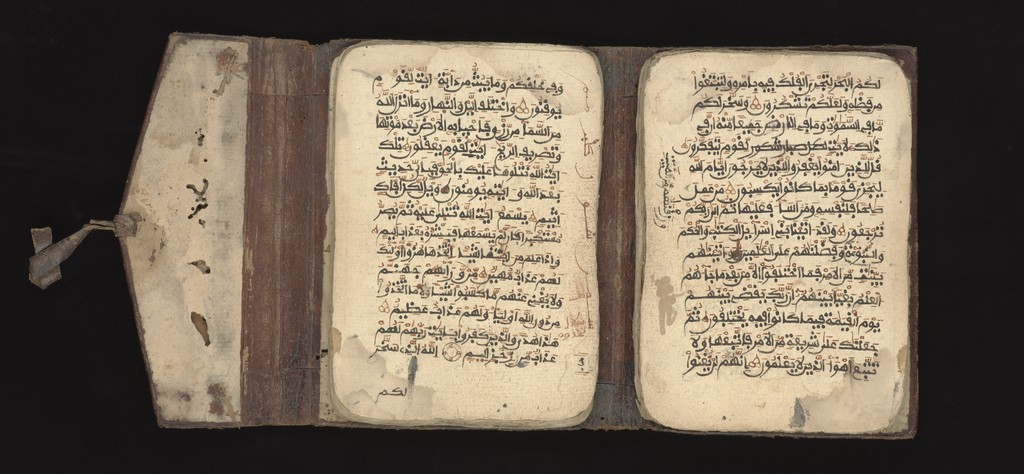 وفي خلقكم وما يبث من دابة ايت لقوم
يوقنون واختلف اليل والنهار وما انزل الله
من السماء من رزق فاحيا به الارض بعد موتها
وتصريف الريح ايت لقوم يعقلون تلك
ايت الله نتلوها عليك بالحق فباي حديث
بعد الله وايته يومنون ويل لكل افاك
اثيم يسمع ايت الله تتلى عليه ثم يصر
مستكبرا كان لم يسمعها فبشره بعذاب اليم
واذا علم من ايتنا شيا اتخذها هزوا اولئك
لهم عذاب مهين من ورايهم جهنم
ولا يغني عنهم ما كسبوا شيا ولا ما اتخذوا
من دون الله اولياء ولهم عذاب عظيم
هذا هدى والذين كفروا بايت ربهم لهم
عذاب من رجز اليم الله الذي سخر
لكم
لكم البحر لتجري الفلك فيه بامره ولتبتغوا
من فضله ولعلكم تشكرون وسخر لكم
ما في السموت وما في الارض جميعا منه ان في
ذلك لايت لكل صبار شكور لقوم يتفكرون
قل للذين امنوا يغفروا للذين لا يرجون ايام الله
ليجزي قوما بما كانوا يكسبون من عمل
صلحا فلنفسه ومن اساء فعليها ثم الى ربكم
ترجعون ولقد اتينا بني اسراءيل الكتب والحكم
والنبوة وفضلنهم على العلمين واتينهم
بينت من الامر فما اختلفوا الا من بعد ما جاءهم
العلم بغيا بينهم ان ربك يقضي بينهم
يوم القيمة فيما كانوا فيه يختلفون ثم
جعلنك على شريعة من الامر فاتبعها ولا
تتبع اهواء الذين لا يعلمون انهم لن يغنوا